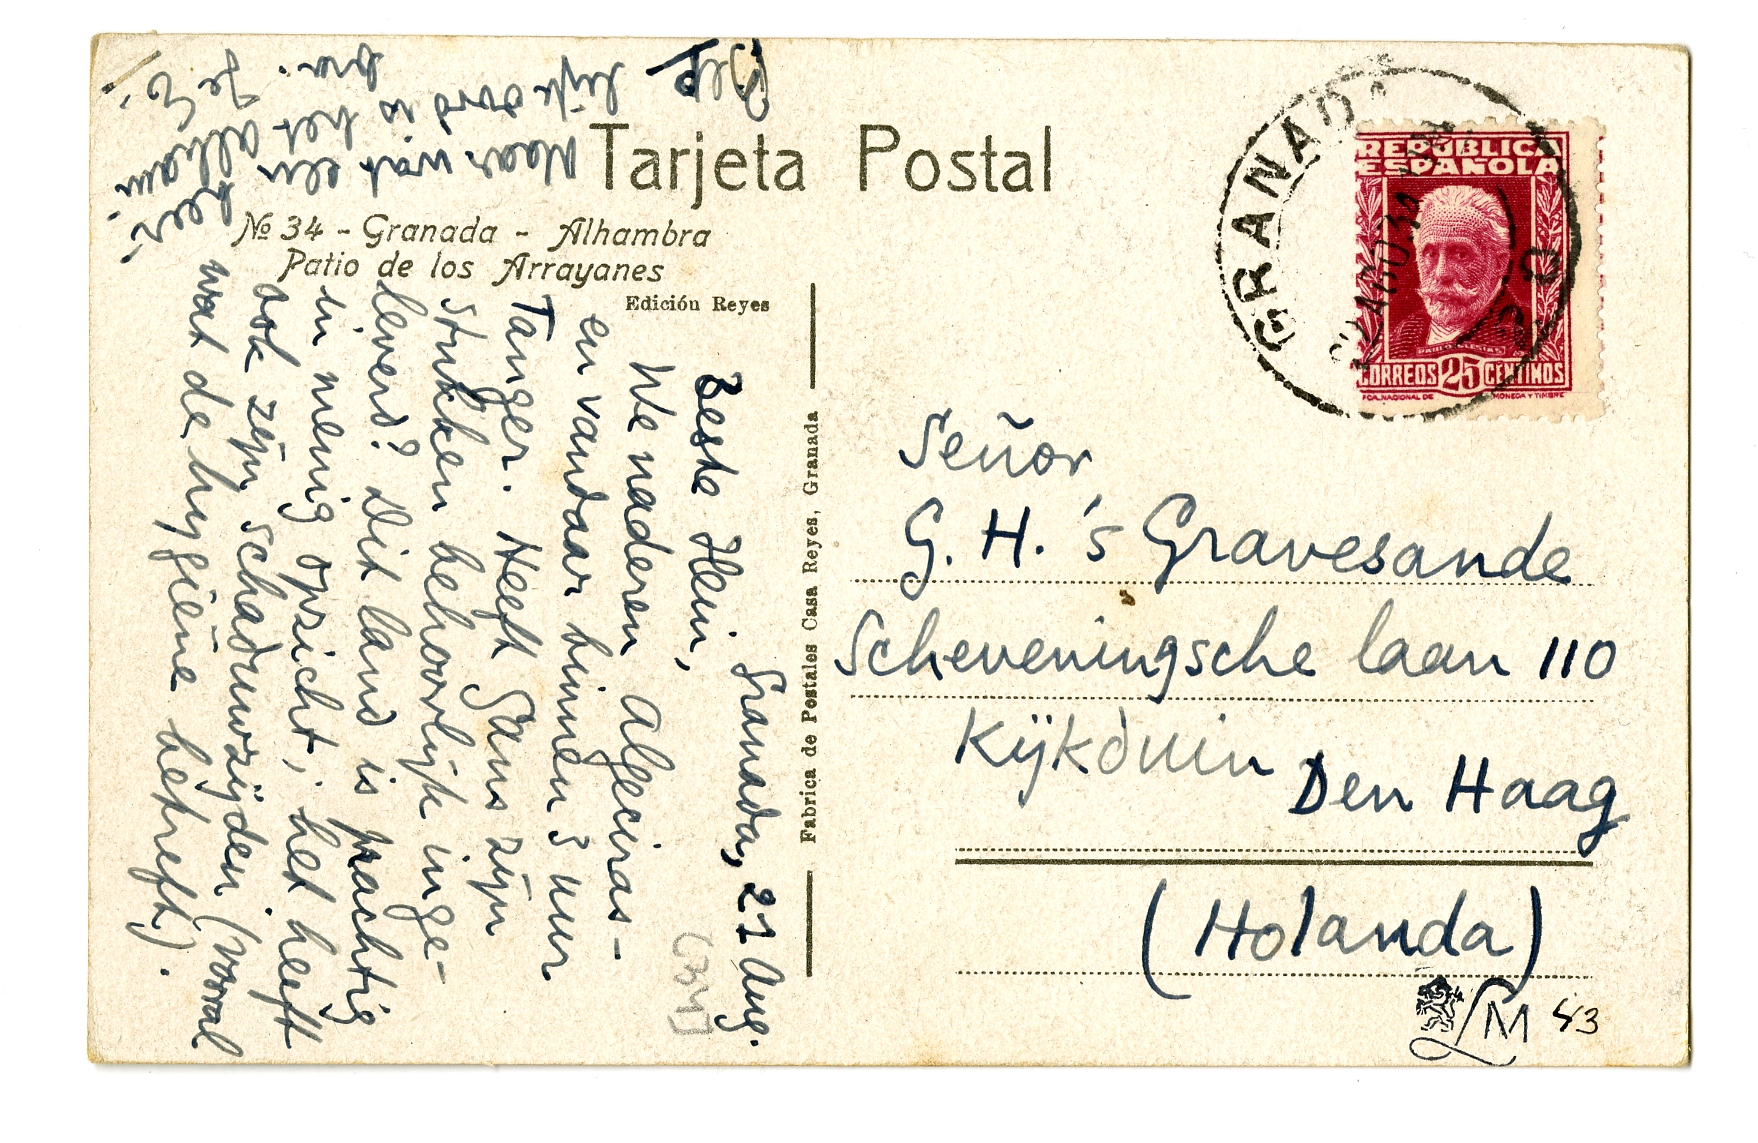 Tarjeta Postal
№ 34 - Granada - Alhambra
Patio de los Arrayanes
Edición Reyes
Fabrica de Postales Casa Reyes, Granada
GRANADA
REPÚBLICA
ESPAÑOLA
PABLO IGLESIAS
CORREOS 25 CENTIMOS
FCA. NACIONAL DE MONEDA Y TIMBRE
Señor
G. H. 's Gravesande
Scheveningsche laan 110
Kijkduin Den Haag
(Holanda)
LM 53
Granada, 21 Aug.
Beste Hein,
We naderen Algeciras -
en vandaar binnen 3 uur
Tanger. Heeft Gans zijn
stukken behoorlijk inge-
leverd? Dit land is prachtig
in menig opzicht; het heeft
ook zijn schaduwzijden (vooral
wat de hygiëne betreft).
Maar wat een
lijk oord is het alham
bra. Je E.